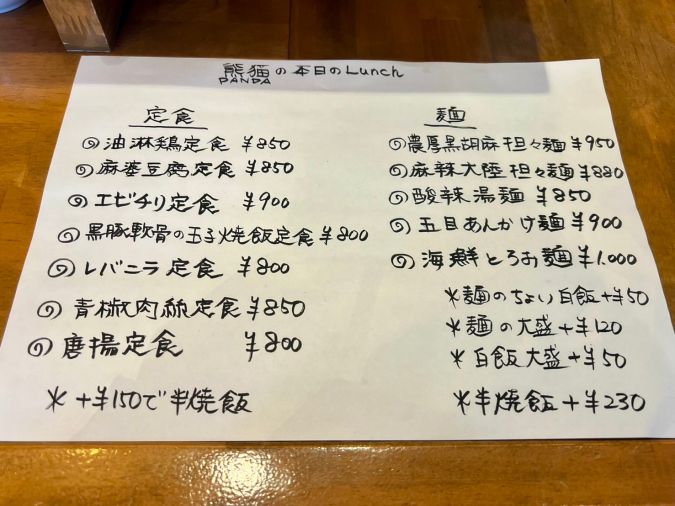 熊猫の本日のLunch
PANDA
定食
油淋鶏定食 ¥850
麻婆豆腐定食 ¥850
エビチリ定食 ¥900
黒豚軟骨の玉子焼飯定食 ¥800
レバニラ定食 ¥800
青椒肉絲定食 ¥850
唐揚定食 ¥800
* +¥150で半焼飯
麺
濃厚黒胡麻担々麺 ¥950
麻辣大陸担々麺 ¥880
酸辣湯麺 ¥850
五目あんかけ麺 ¥900
海鮮とろみ麺 ¥1.000
*麺のちょい白飯+¥50
*麺の大盛+¥120
*白飯大盛+¥50
*半焼飯+¥230